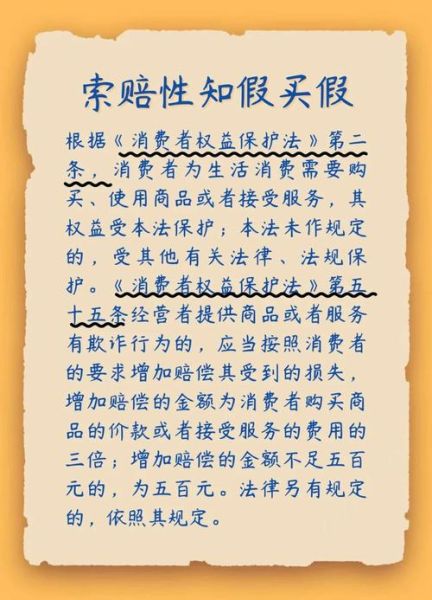 索赔性知假买假
根据《消费者权益保护法》第二
条，消费者为生活消费需要购
买、使用商品或者接受服务，其
权益受本法保护；本法未作规定
的，受其他有关法律、法规保
护。《消费者权益保护法》第五
十五条经营者提供商品或者服务
有欺诈行为的，应当按照消费者
的要求增加赔偿其受到的损失，
增加赔偿的金额为消费者购买商
品的价款或者接受服务的费用的
三倍；增加赔偿的金额不足五百
元的，为五百元。法律另有规定
的，依照其规定。